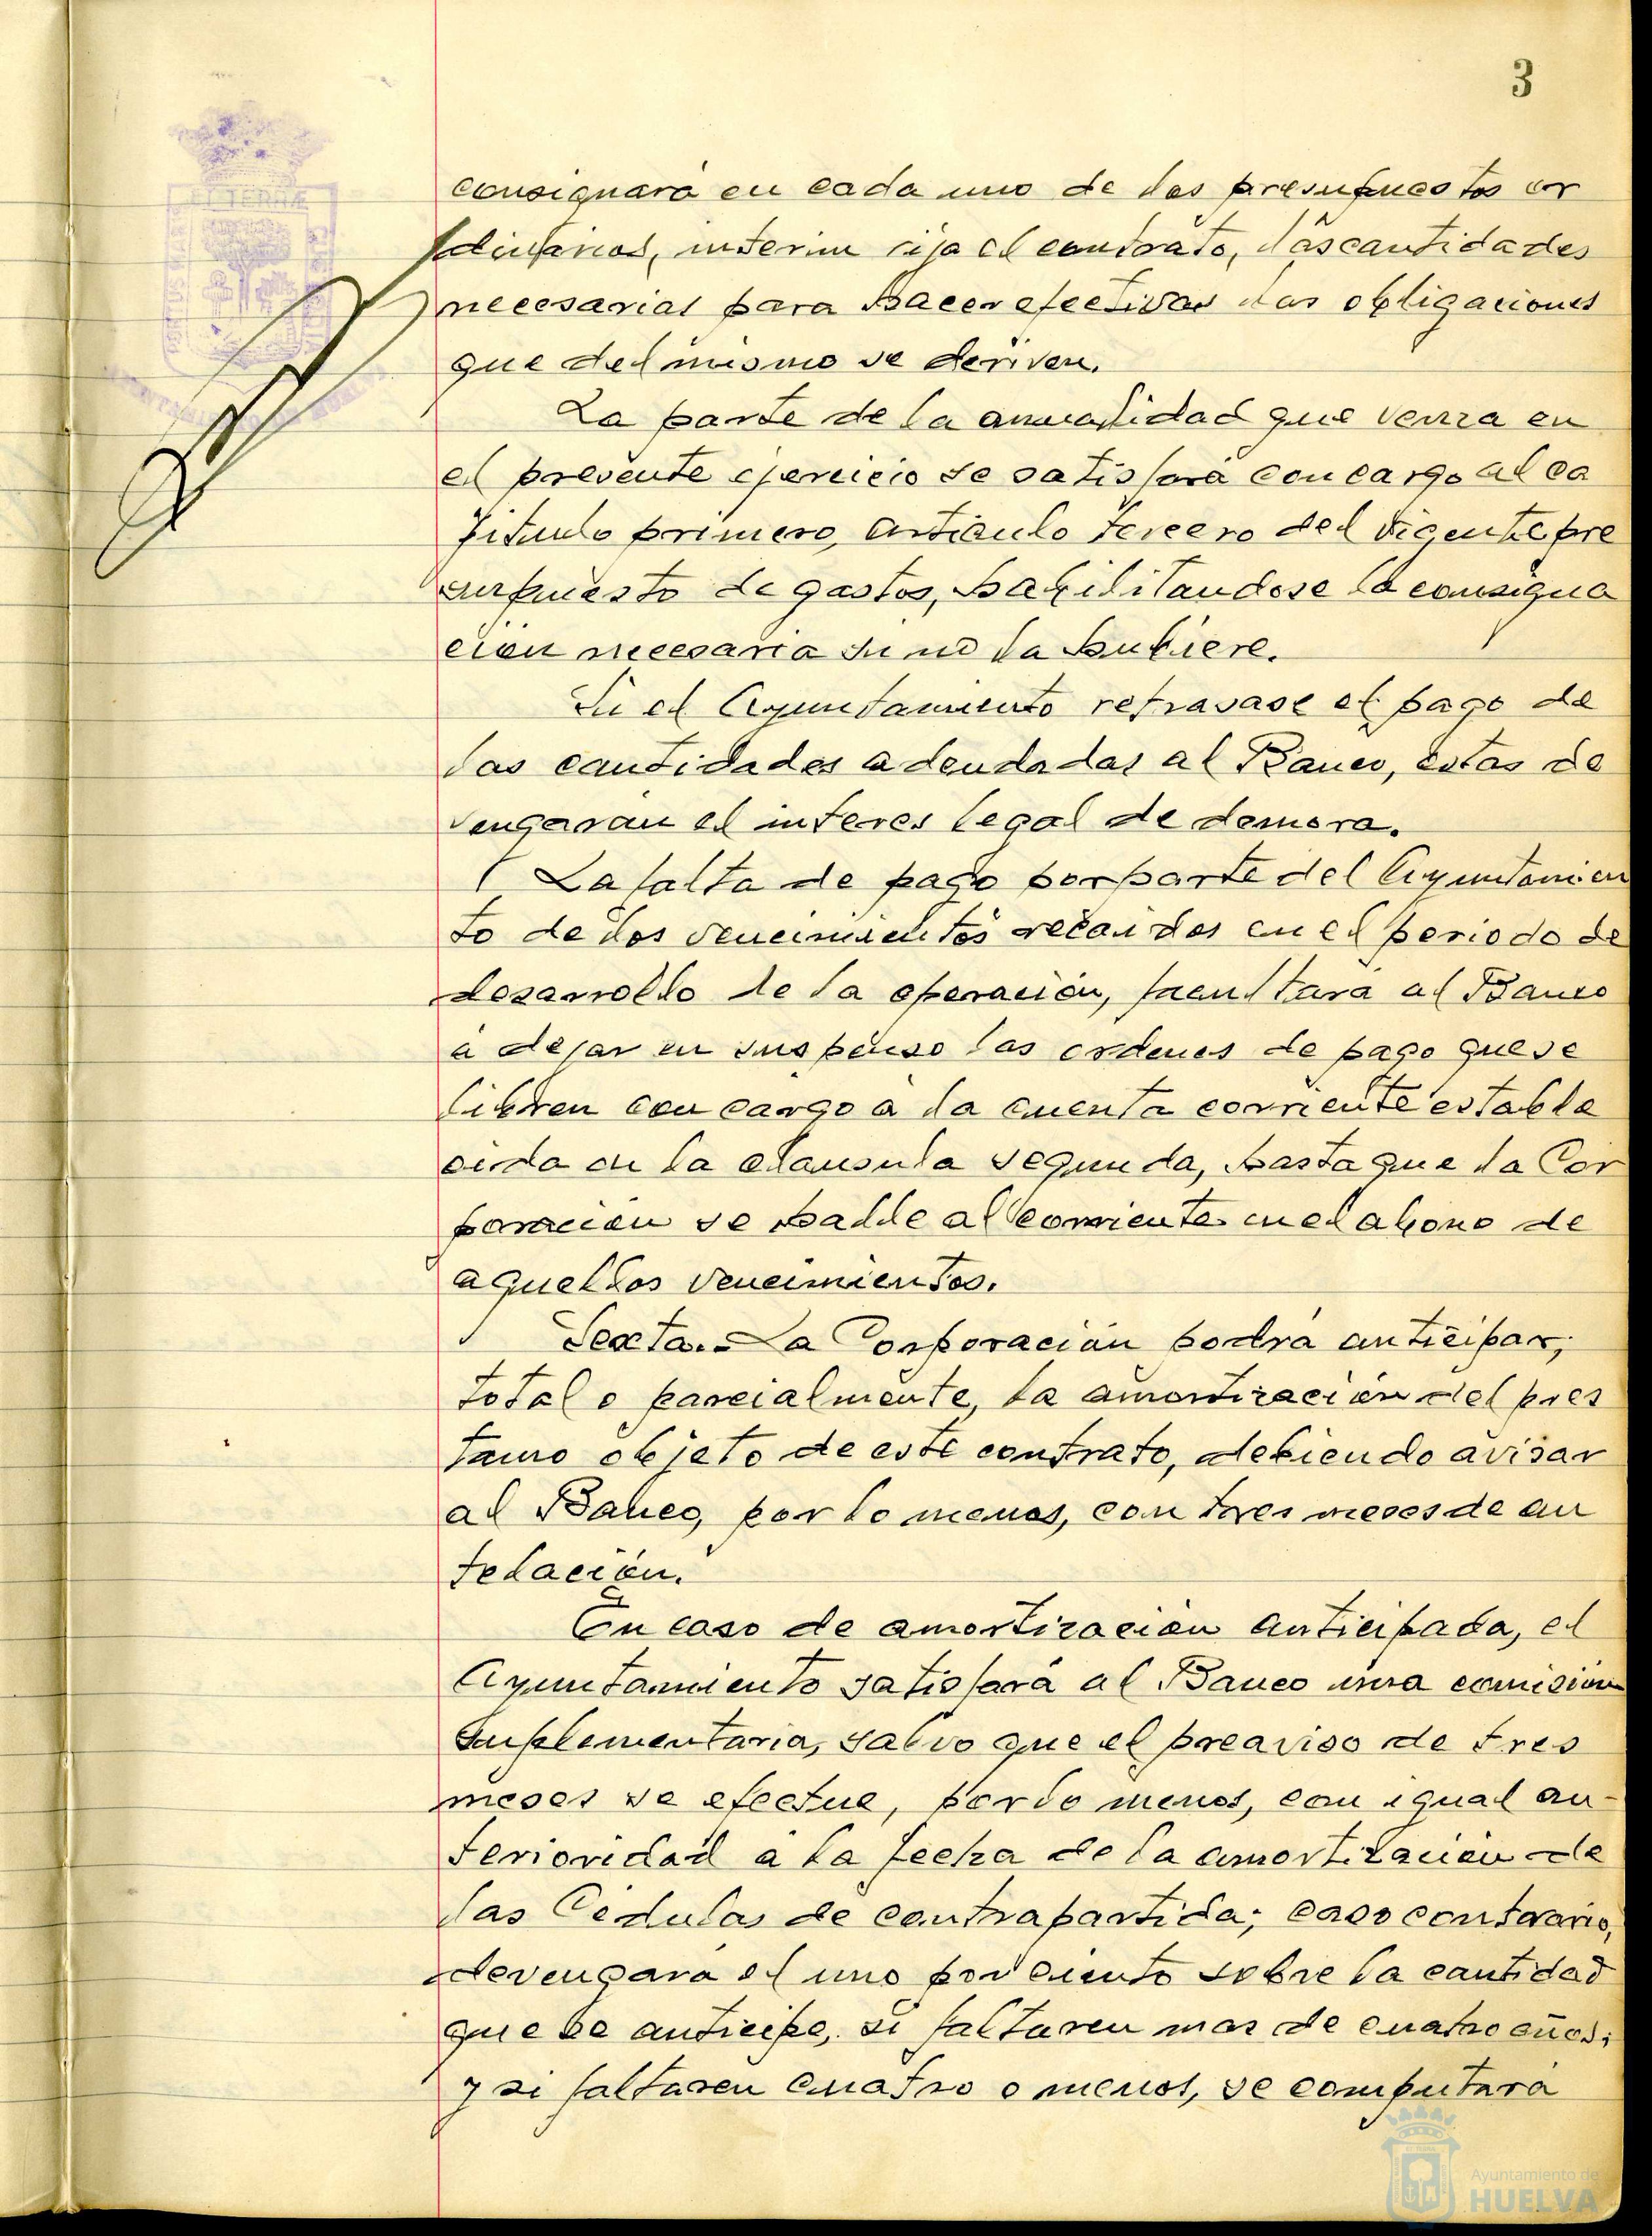 3
consignará en cada uno de los presupuestos or
dinarios, interin rija el contrato, las cantidades
necesarias para hacer efectivas las obligaciones
que del mismo se deriven.
La parte de la anualidad que venza en
el presente ejercicio se satisfará con cargo al ca
pitulo primero, articulo tercero del vigente pre
supuesto de gastos, habilitandose la consigna
ción necesaria si no la hubiere.
Si el Ayuntamiento retrasase el pago de
las cantidades adeudadas al Banco, estas de
vengaran el interes legal de demora.
La falta de pago por parte del Ayuntamien
to de los vencimientos recaidos en el periodo de
desarrollo de la operación, facultará al Banco
a dejar en suspenso las ordenes de pago que se
libren con cargo a la cuenta corriente estable
cida en la clausula segunda, hasta que la Cor
poracion se halle al corriente en el abono de
aquellos vencimientos.
Sexta.- La Corporación podrá anticipar,
total o parcialmente, la amortización del pres
tamo objeto de este contrato, debiendo avisar
al Banco, por lo menos, con tres meses de an
telación.
En caso de amortización anticipada, el
Ayuntamiento satisfará al Banco una comisión
suplementaria, salvo que el preaviso de tres
meses se efectue, por lo menos, con igual an-
terioridad a la fecha de la amortización de
las Cedulas de contrapartida; caso contrario,
devengará el uno por ciento sobre la cantidad
que se anticipe, si faltaren mas de cuatro años;
y si faltasen cuatro o menos, se computará
ET TERRÆ
Ayuntamiento de
HUELVA